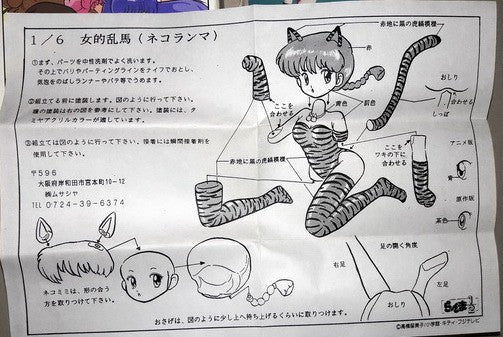 1/6 女的乱馬(ネコランマ)
①まず、パーツを中性洗剤でよく洗います。
その上でバリやパーティングラインをナイフでおとし、
気泡をのばしランナーやパテ等でうめます。
②組立てる前に塗装します。図のように行って下さい。
塗装には、タ
ミヤアクリルカラーが適しています。
③組立ては図のように行って下さい。接着には瞬間接着剤を
使用して下さい。
〒596
大阪府岸和田市宮本町10-12
㈱ムサシヤ
TEL 0724-39-6374
赤地に黒の虎縞模様
赤
おしり
合わせる
しっぽ
ここを
合わせる
黄色
肌色
赤地に黒の虎縞模様
ここを
ワキの下に
合わせる
アニメ版
青
原作版
茶色
ネコミミは、形の合う
方を取りつけて下さい。
おさげは、図のように少し上へ持ち上げるくらいに取りつけます。
足の開く角度
右足
左足
おしり
らんま1/2
©高橋留美子/小学館・キティ・フジテレビ